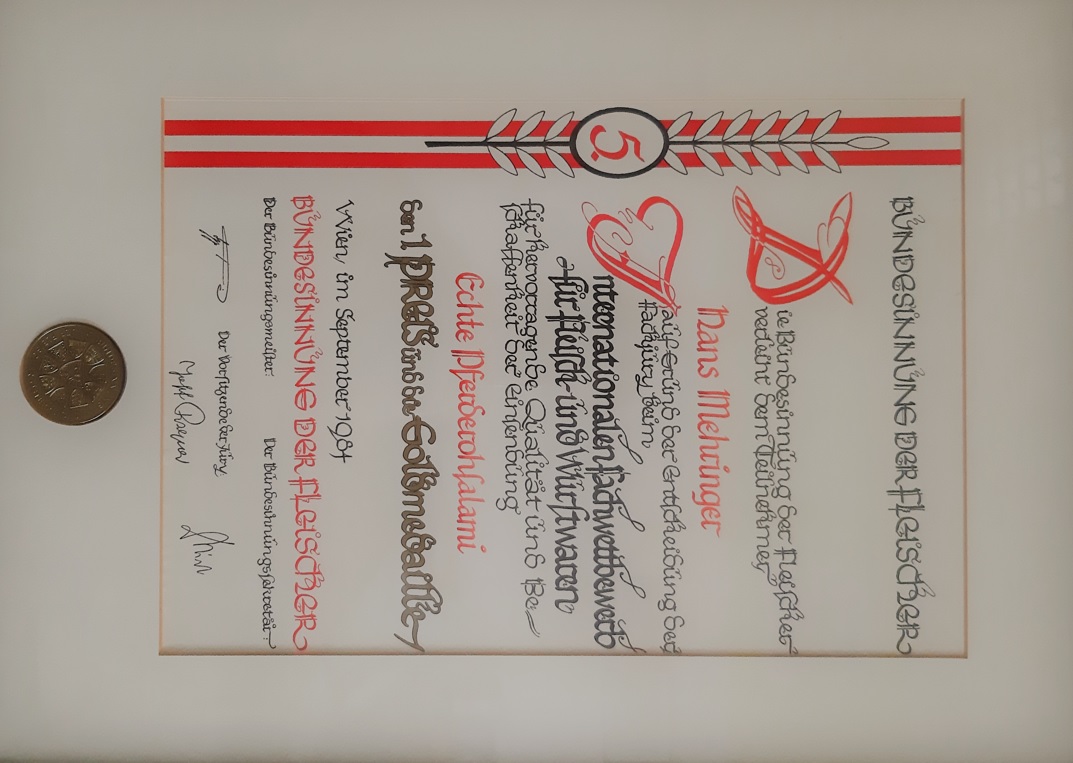 BUNDESINNUNG DER FLEISCHER
5.
Die Bundesinnung der Fleischer
verleiht dem Teilnehmer
Hans Mehringer
auf Grund der Entscheidung der
Fachjury beim
Internationalen Fachwettbewerb
für Fleisch- und Wurstwaren
für hervorragende Qualität und Be-
schaffenheit der Einsendung
Echte Pferderohsalami
den 1 PREIS und die Goldmedaille
Wien, im September 1984
BUNDESINNUNG DER FLEISCHER
Der Bundesinnungsmeister:
Der Bundesinnungssekretär:
Der Vorsitzende der Jury